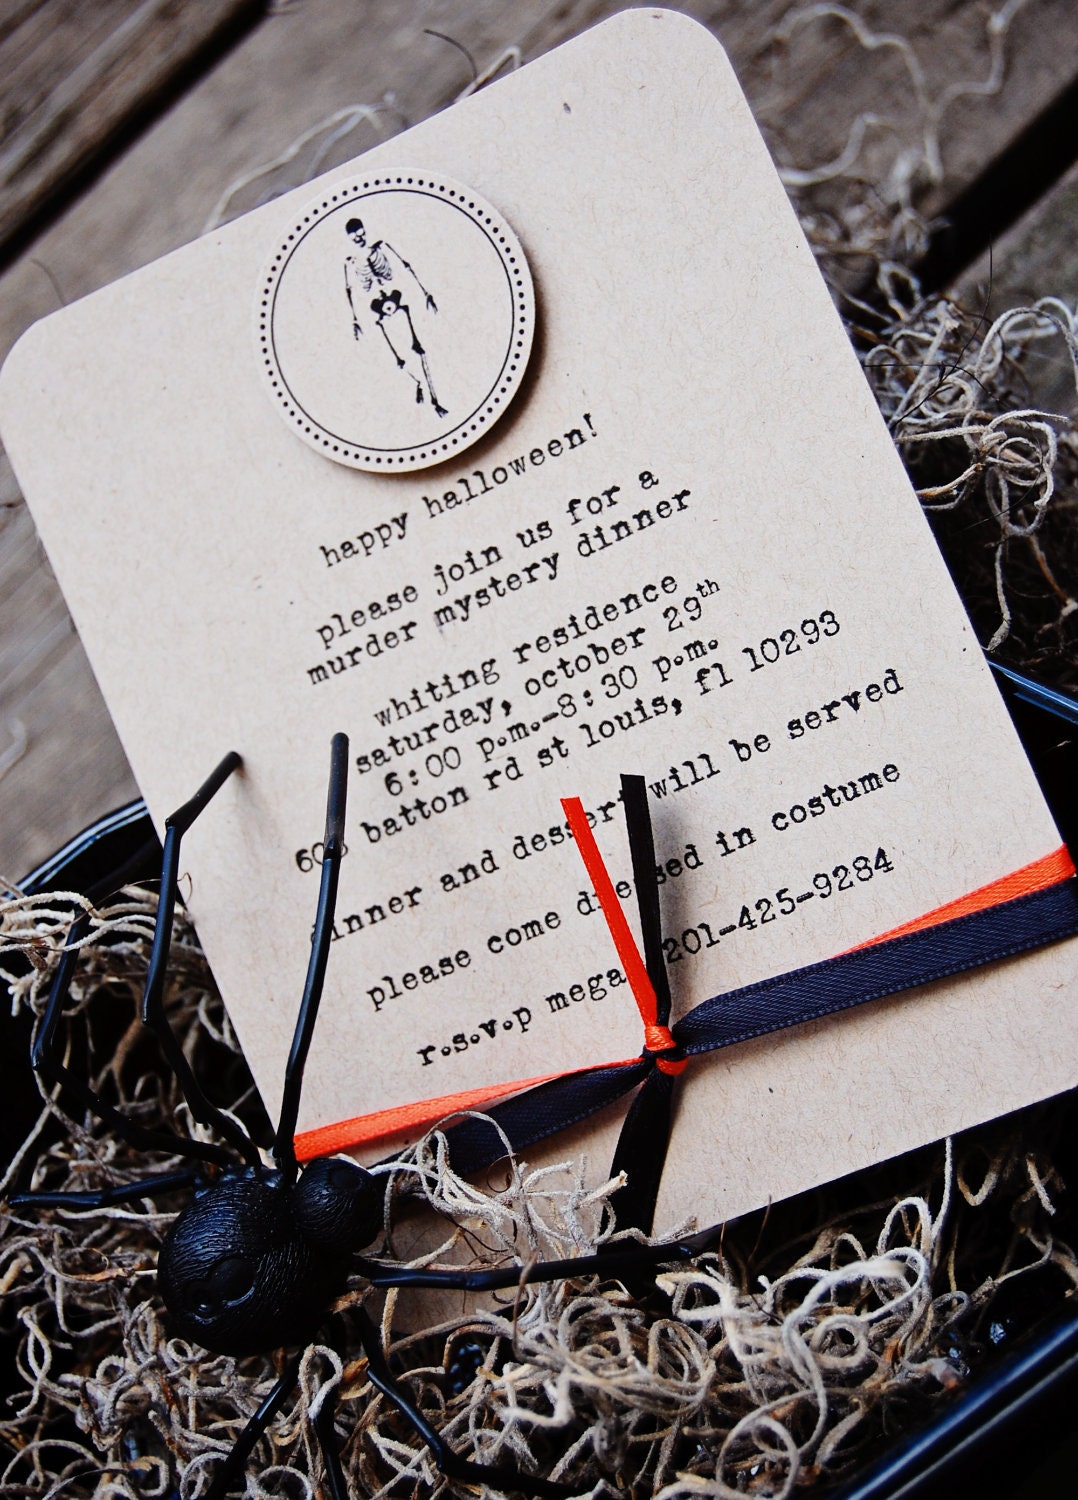 happy halloween!
please join us for a
murder mystery dinner
whiting residence
saturday, october 29th
6:00 p.m.-8:30 p.m.
batton rd st louis, fl 10293
dinner and dessert will be served
please come dressed in costume
r.s.v.p 201-425-9284